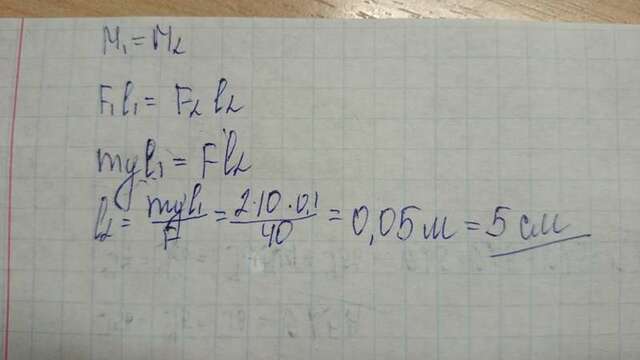 M₁ = M₂
F₁l₁ = F₂ l₂
mgl₁ = Fl₂
l₂ = mgl₁/F = 2·10·0,1/40 = 0,05 м = 5 см